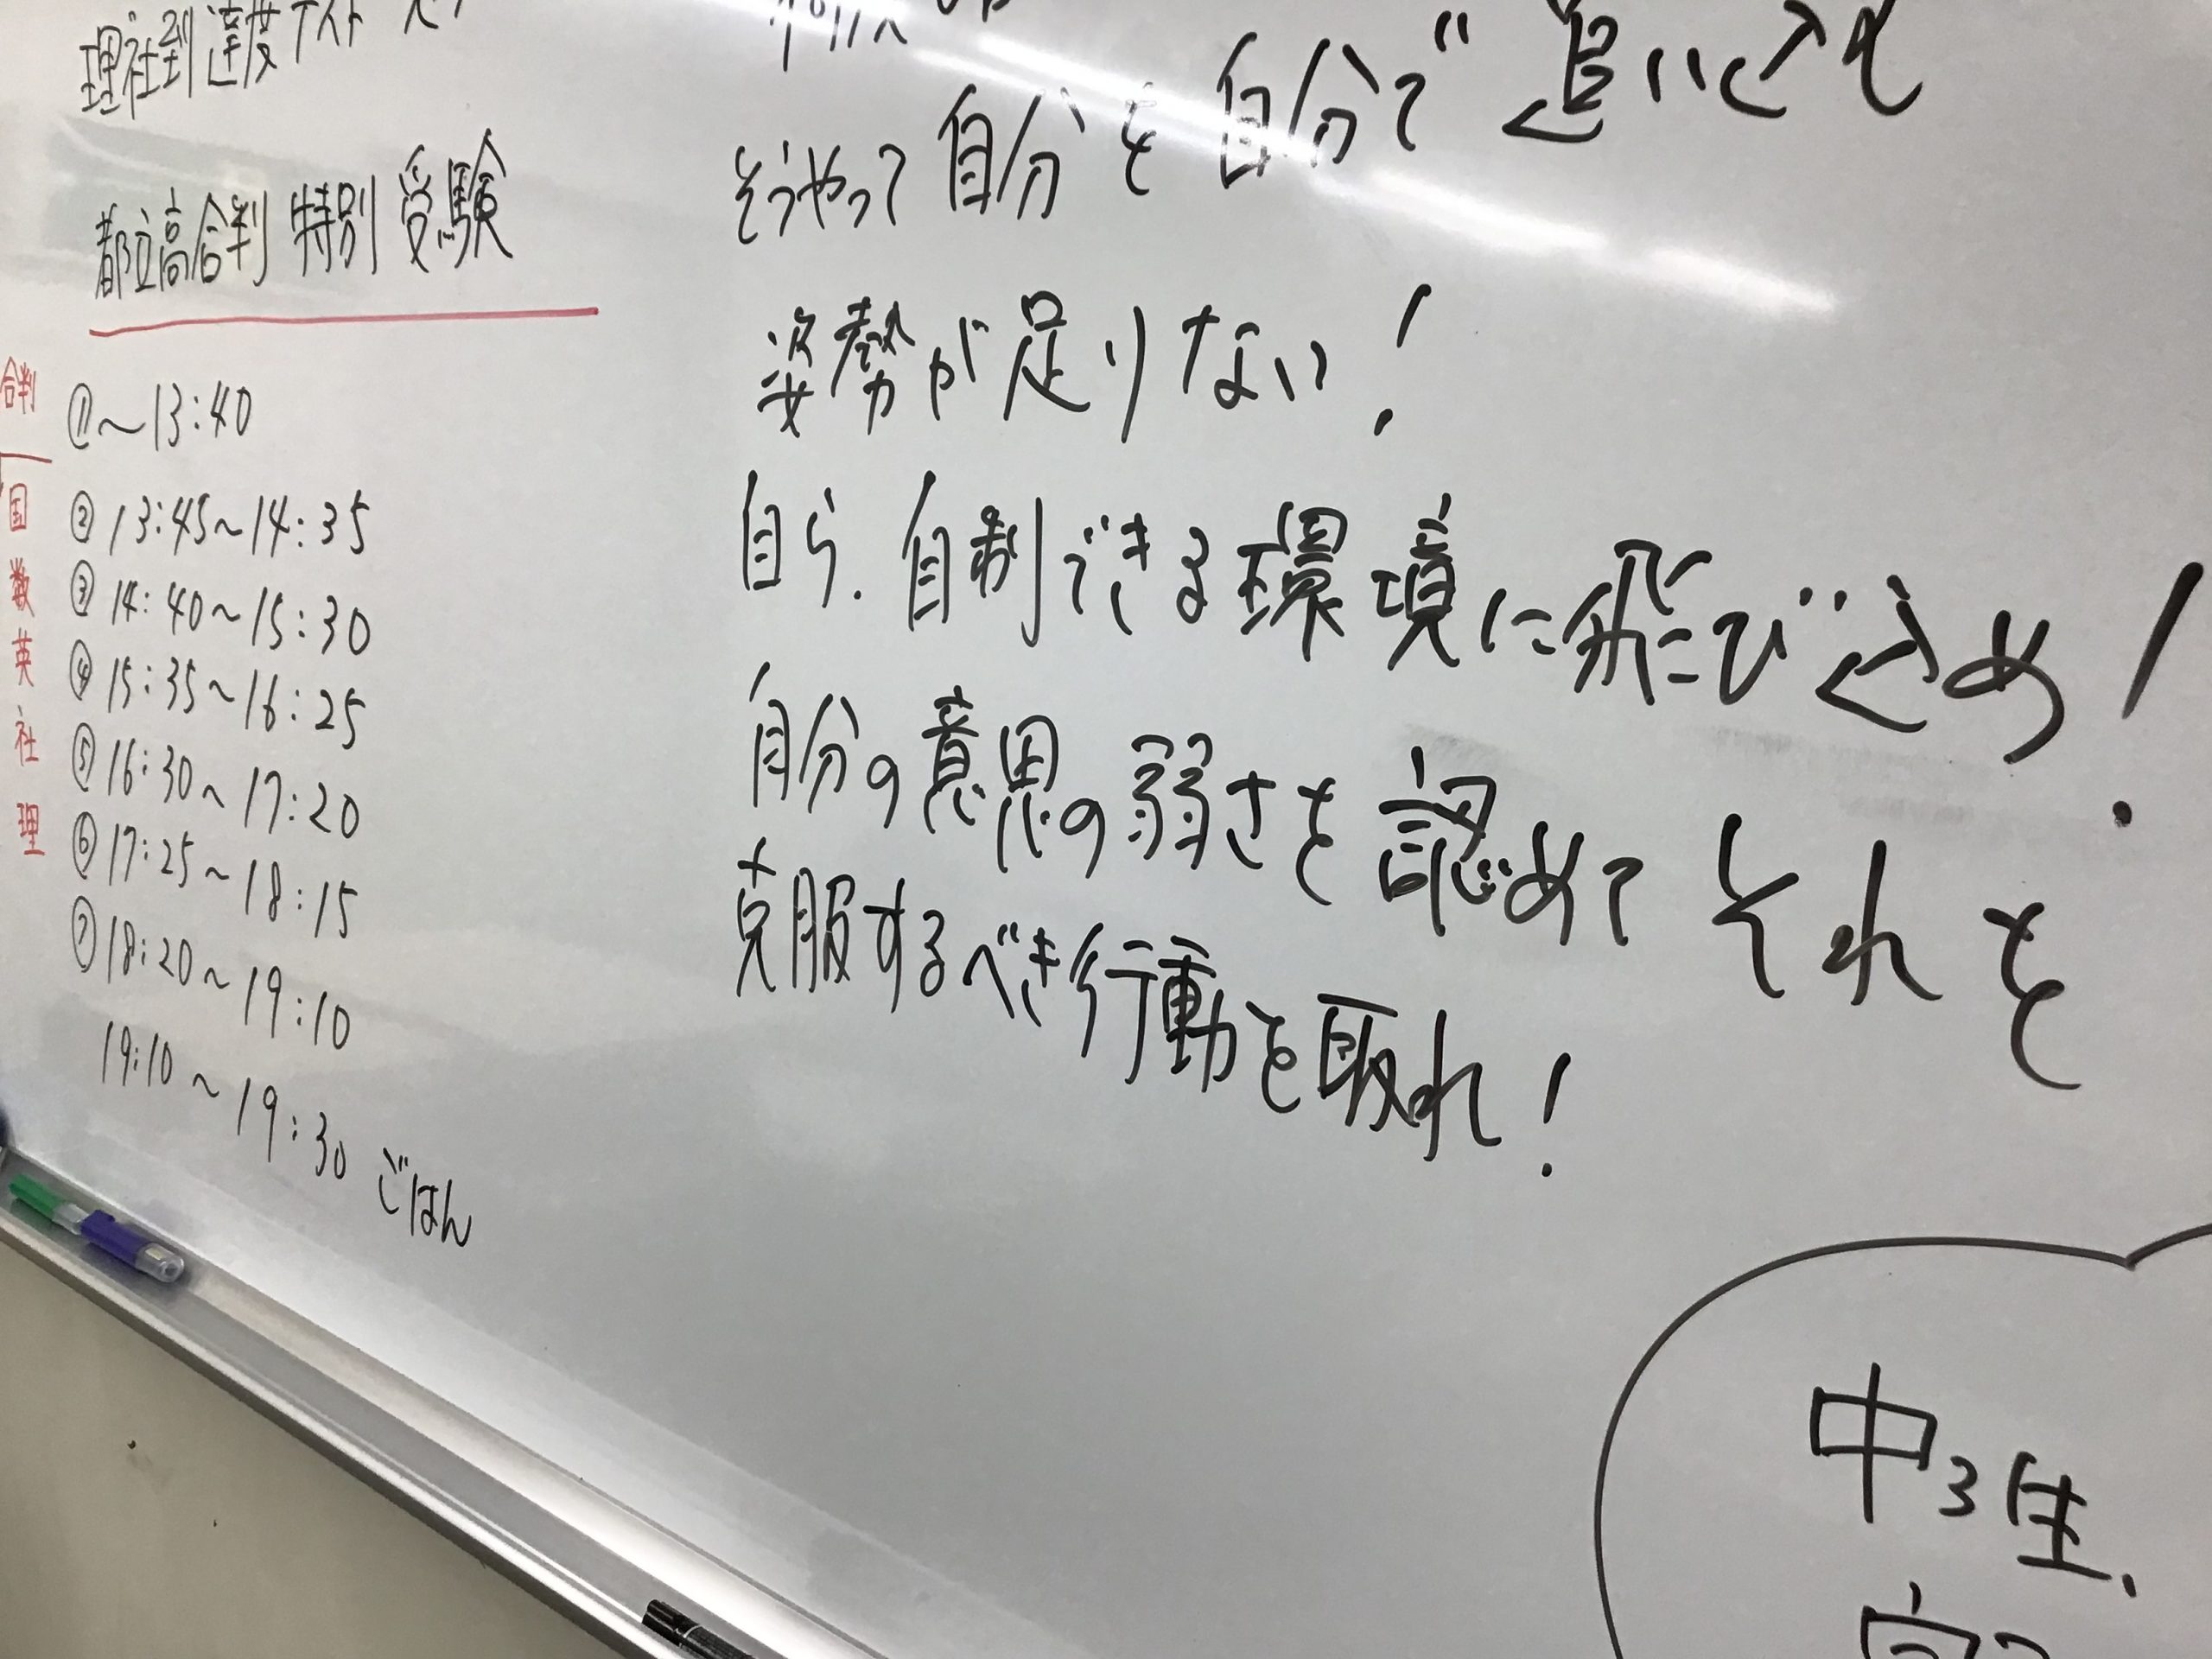 理社到達度テスト
都立高合判 特別受験
合判
① 〜13:40
国 ② 13:45〜14:35
数 ③ 14:40〜15:30
英 ④ 15:35〜16:25
社 ⑤ 16:30〜17:20
理 ⑥ 17:25〜18:15
⑦ 18:20〜19:10
19:10〜19:30 ごはん
そうやって自分を自分で追い込む
姿勢が足りない!
自ら、自制できる環境に飛び込め!
自分の意思の弱さを認めてそれを
克服するべき行動を取れ!
中3生、